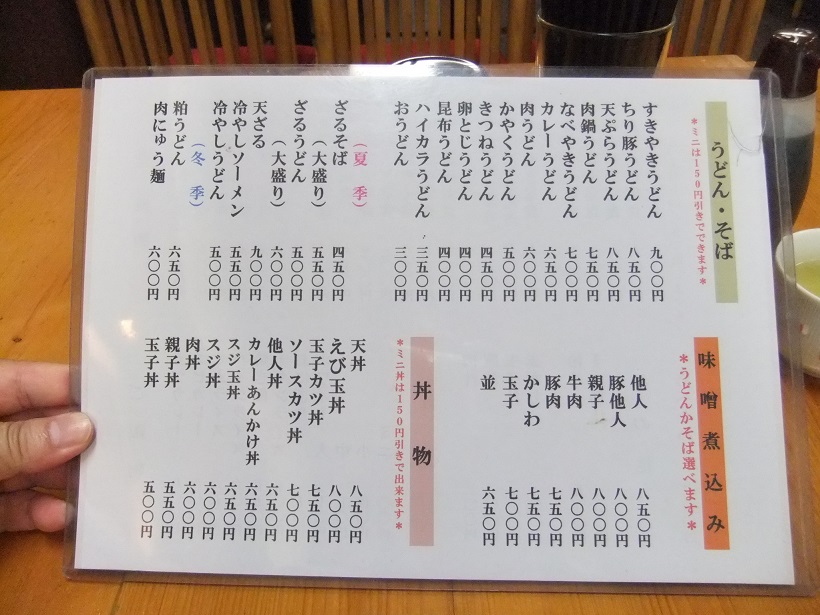 うどん・そば
*ミニは150円引きでできます*
すきやきうどん 九〇〇円
ちり豚うどん 八五〇円
天ぷらうどん 八五〇円
肉鍋うどん 七五〇円
なべやきうどん 七〇〇円
カレーうどん 六五〇円
肉うどん 六〇〇円
かやくうどん 五〇〇円
きつねうどん 四五〇円
卵とじうどん 四〇〇円
昆布うどん 四〇〇円
ハイカラうどん 三五〇円
おうどん 三〇〇円
(夏 季)
ざるそば 四五〇円
(大盛り) 五五〇円
ざるうどん 五〇〇円
(大盛り) 六〇〇円
天ざる 九〇〇円
冷やしソーメン 五五〇円
冷やしうどん 五〇〇円
(冬 季)
粕うどん 六五〇円
肉にゅう麺 六〇〇円
味噌煮込み
*うどんかそば選べます*
他人 八五〇円
豚他人 八〇〇円
親子 八〇〇円
牛肉 八〇〇円
豚肉 七五〇円
かしわ 七五〇円
玉子 七〇〇円
並 六五〇円
丼物
*ミニ丼は150円引きで出来ます*
天丼 八五〇円
えび玉丼 八〇〇円
玉子カツ丼 七五〇円
ソースカツ丼 七〇〇円
他人丼 六五〇円
カレーあんかけ丼 六五〇円
スジ玉丼 六五〇円
スジ丼 六〇〇円
肉丼 六〇〇円
親子丼 五五〇円
玉子丼 五〇〇円